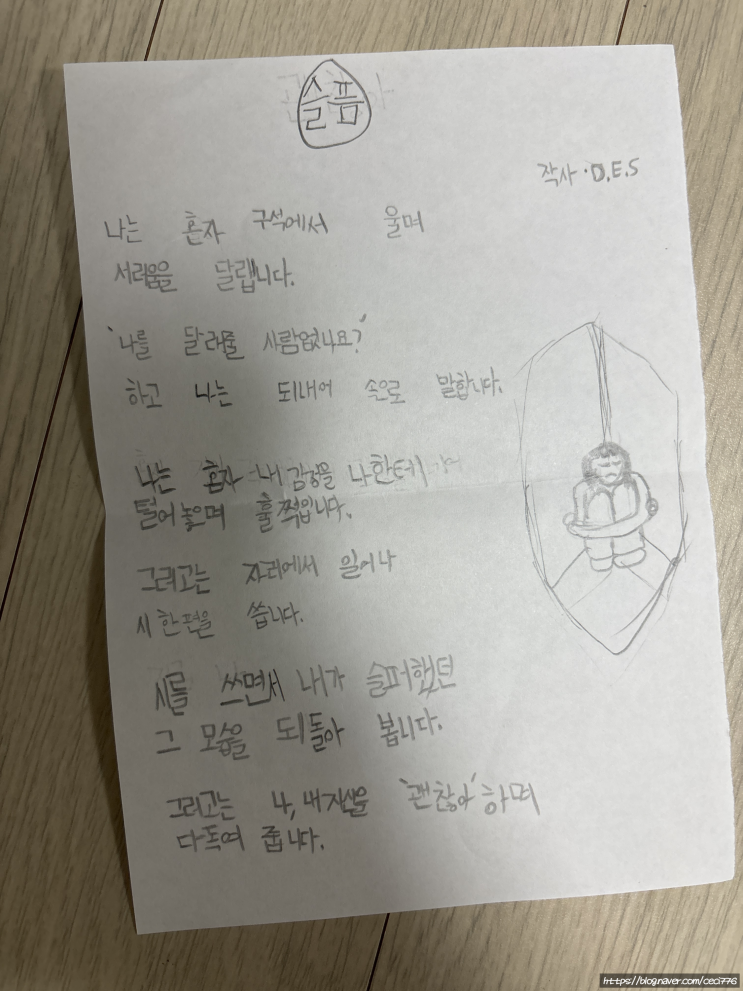 슬픔
작사·D.E.S
나는 혼자 구석에서 울며
서러움을 달랩니다.
'나를 달래줄 사람없나요?'
하고 나는 되내어 속으로 말합니다.
나는 혼자 내 감정을 나한테
털어놓으며 훌쩍입니다.
그리고는 자리에서 일어나
시 한편을 씁니다.
시를 쓰면서 내가 슬퍼했던
그 모습을 되돌아 봅니다.
그리고는 나, 내자신을 '괜찮아' 하며
다독여 줍니다.
https://blog.naver.com/ceci776